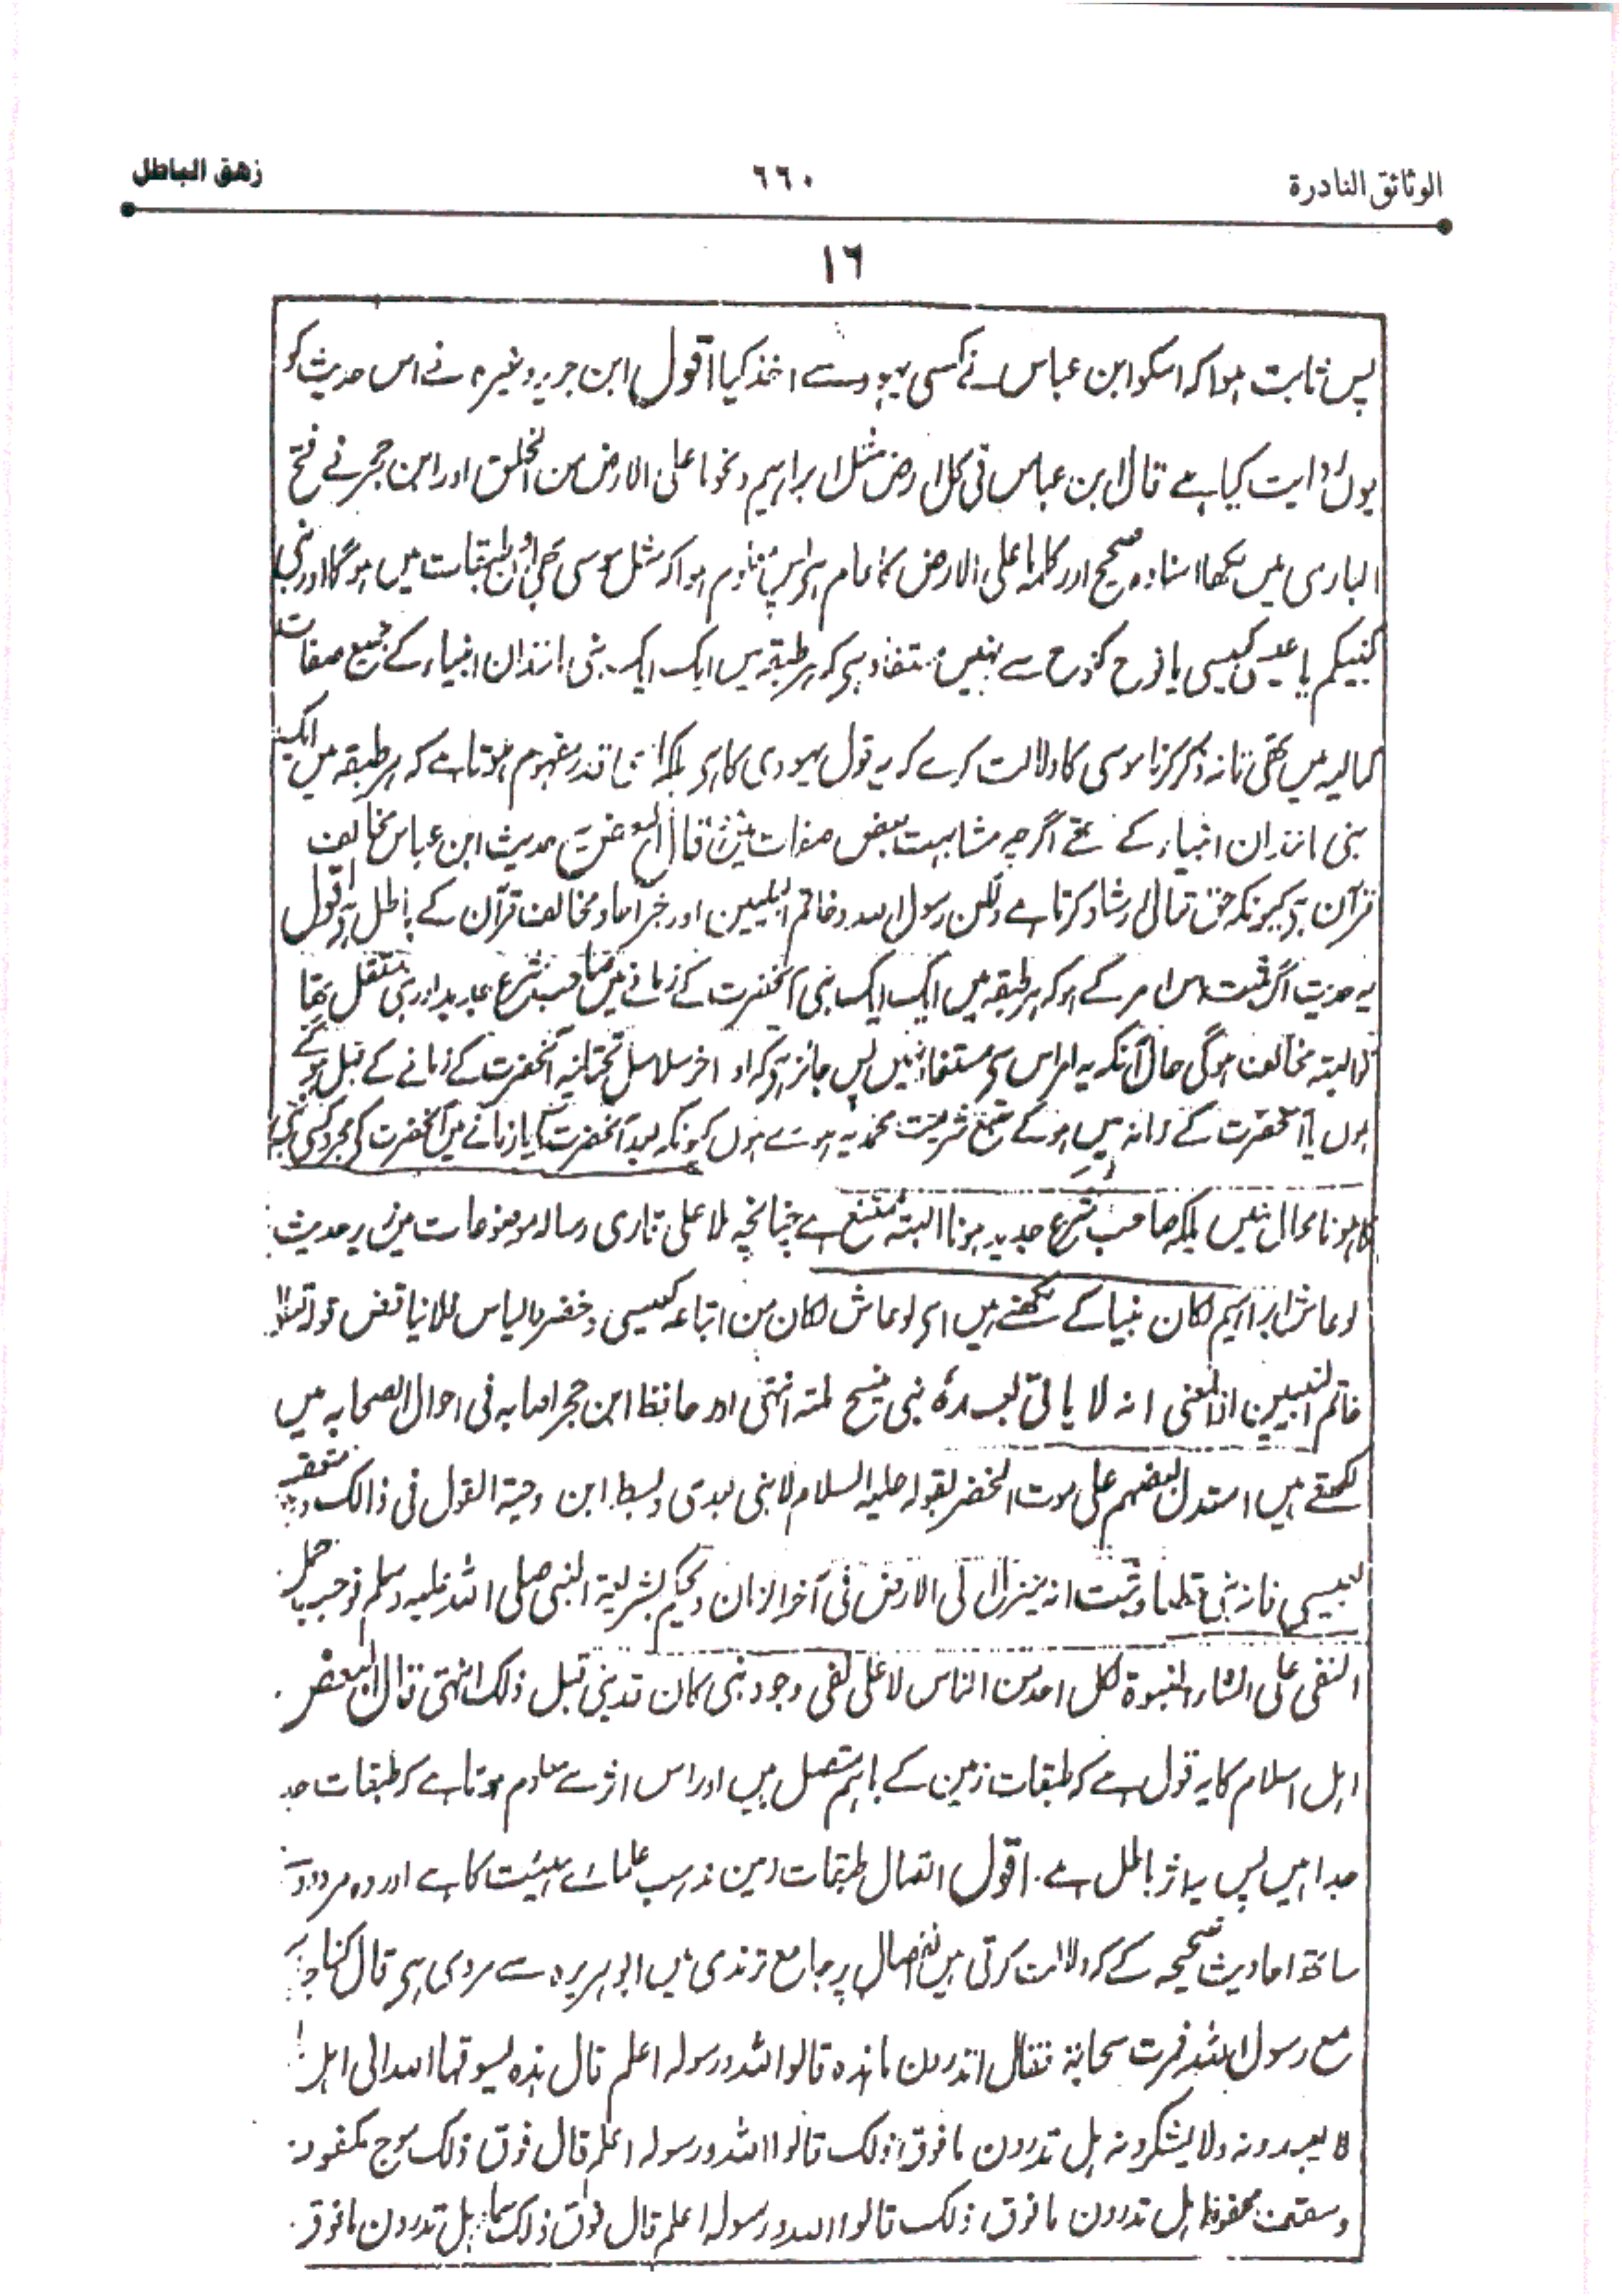 الوثائق النادرة
٦٦٠
زهق الباطل
١٦
پس ثابت ہوا کہ اسکو ابن عباس نے کسی یہود سے اخذ کیا اقول ابن جریر وغیرہ نے اس حدیث کو
یوں روایت کیا ہے قال ابن عباس فی کل ارض مثل ابراہیم ونحو ما علی الارض من الخلق اور ابن حجر نے فتح
الباری میں لکھا اسنادہ صحیح اور کلمہ ما علی الارض کا عام ہی پس معلوم ہوا کہ مثل موسی بھی ان طبقات میں ہوگا اور نبی
کنبیکم یا عیسی کعیسی یا نوح کنوح سے نہیں مستفاد ہی کہ ہر طبقہ میں ایک ایک نبی مانند ان انبیاء کے جمیع صفات
کمالیہ میں تھی تا نہ ذکر کرنا موسی کا دلالت کرے کہ یہ قول یہودی کا ہی بلکہ اسقدر مفہوم ہوتا ہے کہ ہر طبقہ میں ایک
نبی مانند ان انبیاء کے تھے اگرچہ مشابہت بعض صفات میں قال البعض حدیث ابن عباس مخالف
قرآن ہے کیونکہ حق تعالی ارشاد کرتا ہے ولکن رسول اللہ وخاتم النبیین اور خبر احاد مخالف قرآن کے باطل ہے اقول
یہ حدیث اگر مثبت اس امر کے ہو کہ ہر طبقہ میں ایک ایک نبی آنحضرت کے زمانے میں صاحب شرع جدید اور نبی مستقل تھا
تو البتہ مخالف ہوگی حال آنکہ یہ امر اس سی مستفاد نہیں پس جائز ہے کہ اواخر سلاسل تحتانیہ آنحضرت کے زمانے کے قبل ہوگئے
ہوں یا آنحضرت کے زمانہ میں ہو کے متبع شریعت محمدیہ ہوے ہوں کیونکہ بعد آنحضرت کے یا زمانے میں آنحضرت کی مجرد کسی نبی
کا ہونا محال نہیں بلکہ صاحب شرع جدید ہونا البتہ ممتنع ہے چنانچہ ملا علی قاری رسالہ موضوعات میں زیر حدیث
لو عاش ابراہیم لکان نبیا کے لکھتے ہیں ای لو عاش لکان من اتباعہ کعیسی وخضر والیاس فلا یناقض قولہ تعالی
خاتم النبیین اذ المعنی انہ لا یاتی بعدہ نبی ینسخ ملتہ انتہی اور حافظ ابن حجر اصابہ فی احوال الصحابہ میں
لکھتے ہیں استدل بعضہم علی موت الخضر بقولہ علیہ السلام لا نبی بعدی وبسط ابن دحیۃ القول فی ذالک
بعیسی فانہ نبی قطعا وثبت انہ ینزل الی الارض فی آخر الزمان ویحکم بشریعۃ النبی صلی اللہ علیہ وسلم فوجب حمل
النفی علی انشاء النبوۃ لکل احد من الناس لا علی نفی وجود نبی کان قد نبی قبل ذلک انتہی قال البعض
اہل اسلام کا یہ قول ہے کہ طبقات زمین کے باہم متصل ہیں اور اس اثر سے معلوم ہوتا ہے کہ طبقات جدا
جدا ہیں پس یہ اثر باطل ہے. اقول اتصال طبقات زمین مذہب علمائے ہیئت کا ہے اور وہ مردود ہے
ساتھ احادیث صحیحہ کے کہ دلالت کرتی ہیں انفصال پر جامع ترمذی میں ابو ہریرہ سے مروی ہی قال کنا
مع رسول اللہ فمرت سحابۃ فقال اتدرون ما ہذہ قالوا اللہ ورسولہ اعلم قال ہذہ یسوقہا اللہ الی اہل
لا یعبدونہ ولا یشکرونہ ہل تدرون ما فوق ذلک قالوا اللہ ورسولہ اعلم قال فوق ذلک موج مکفوف
وسقف محفوظ ہل تدرون ما فوق ذلک قالوا اللہ ورسولہ اعلم قال فوق ذلک سماء ہل تدرون ما فوق